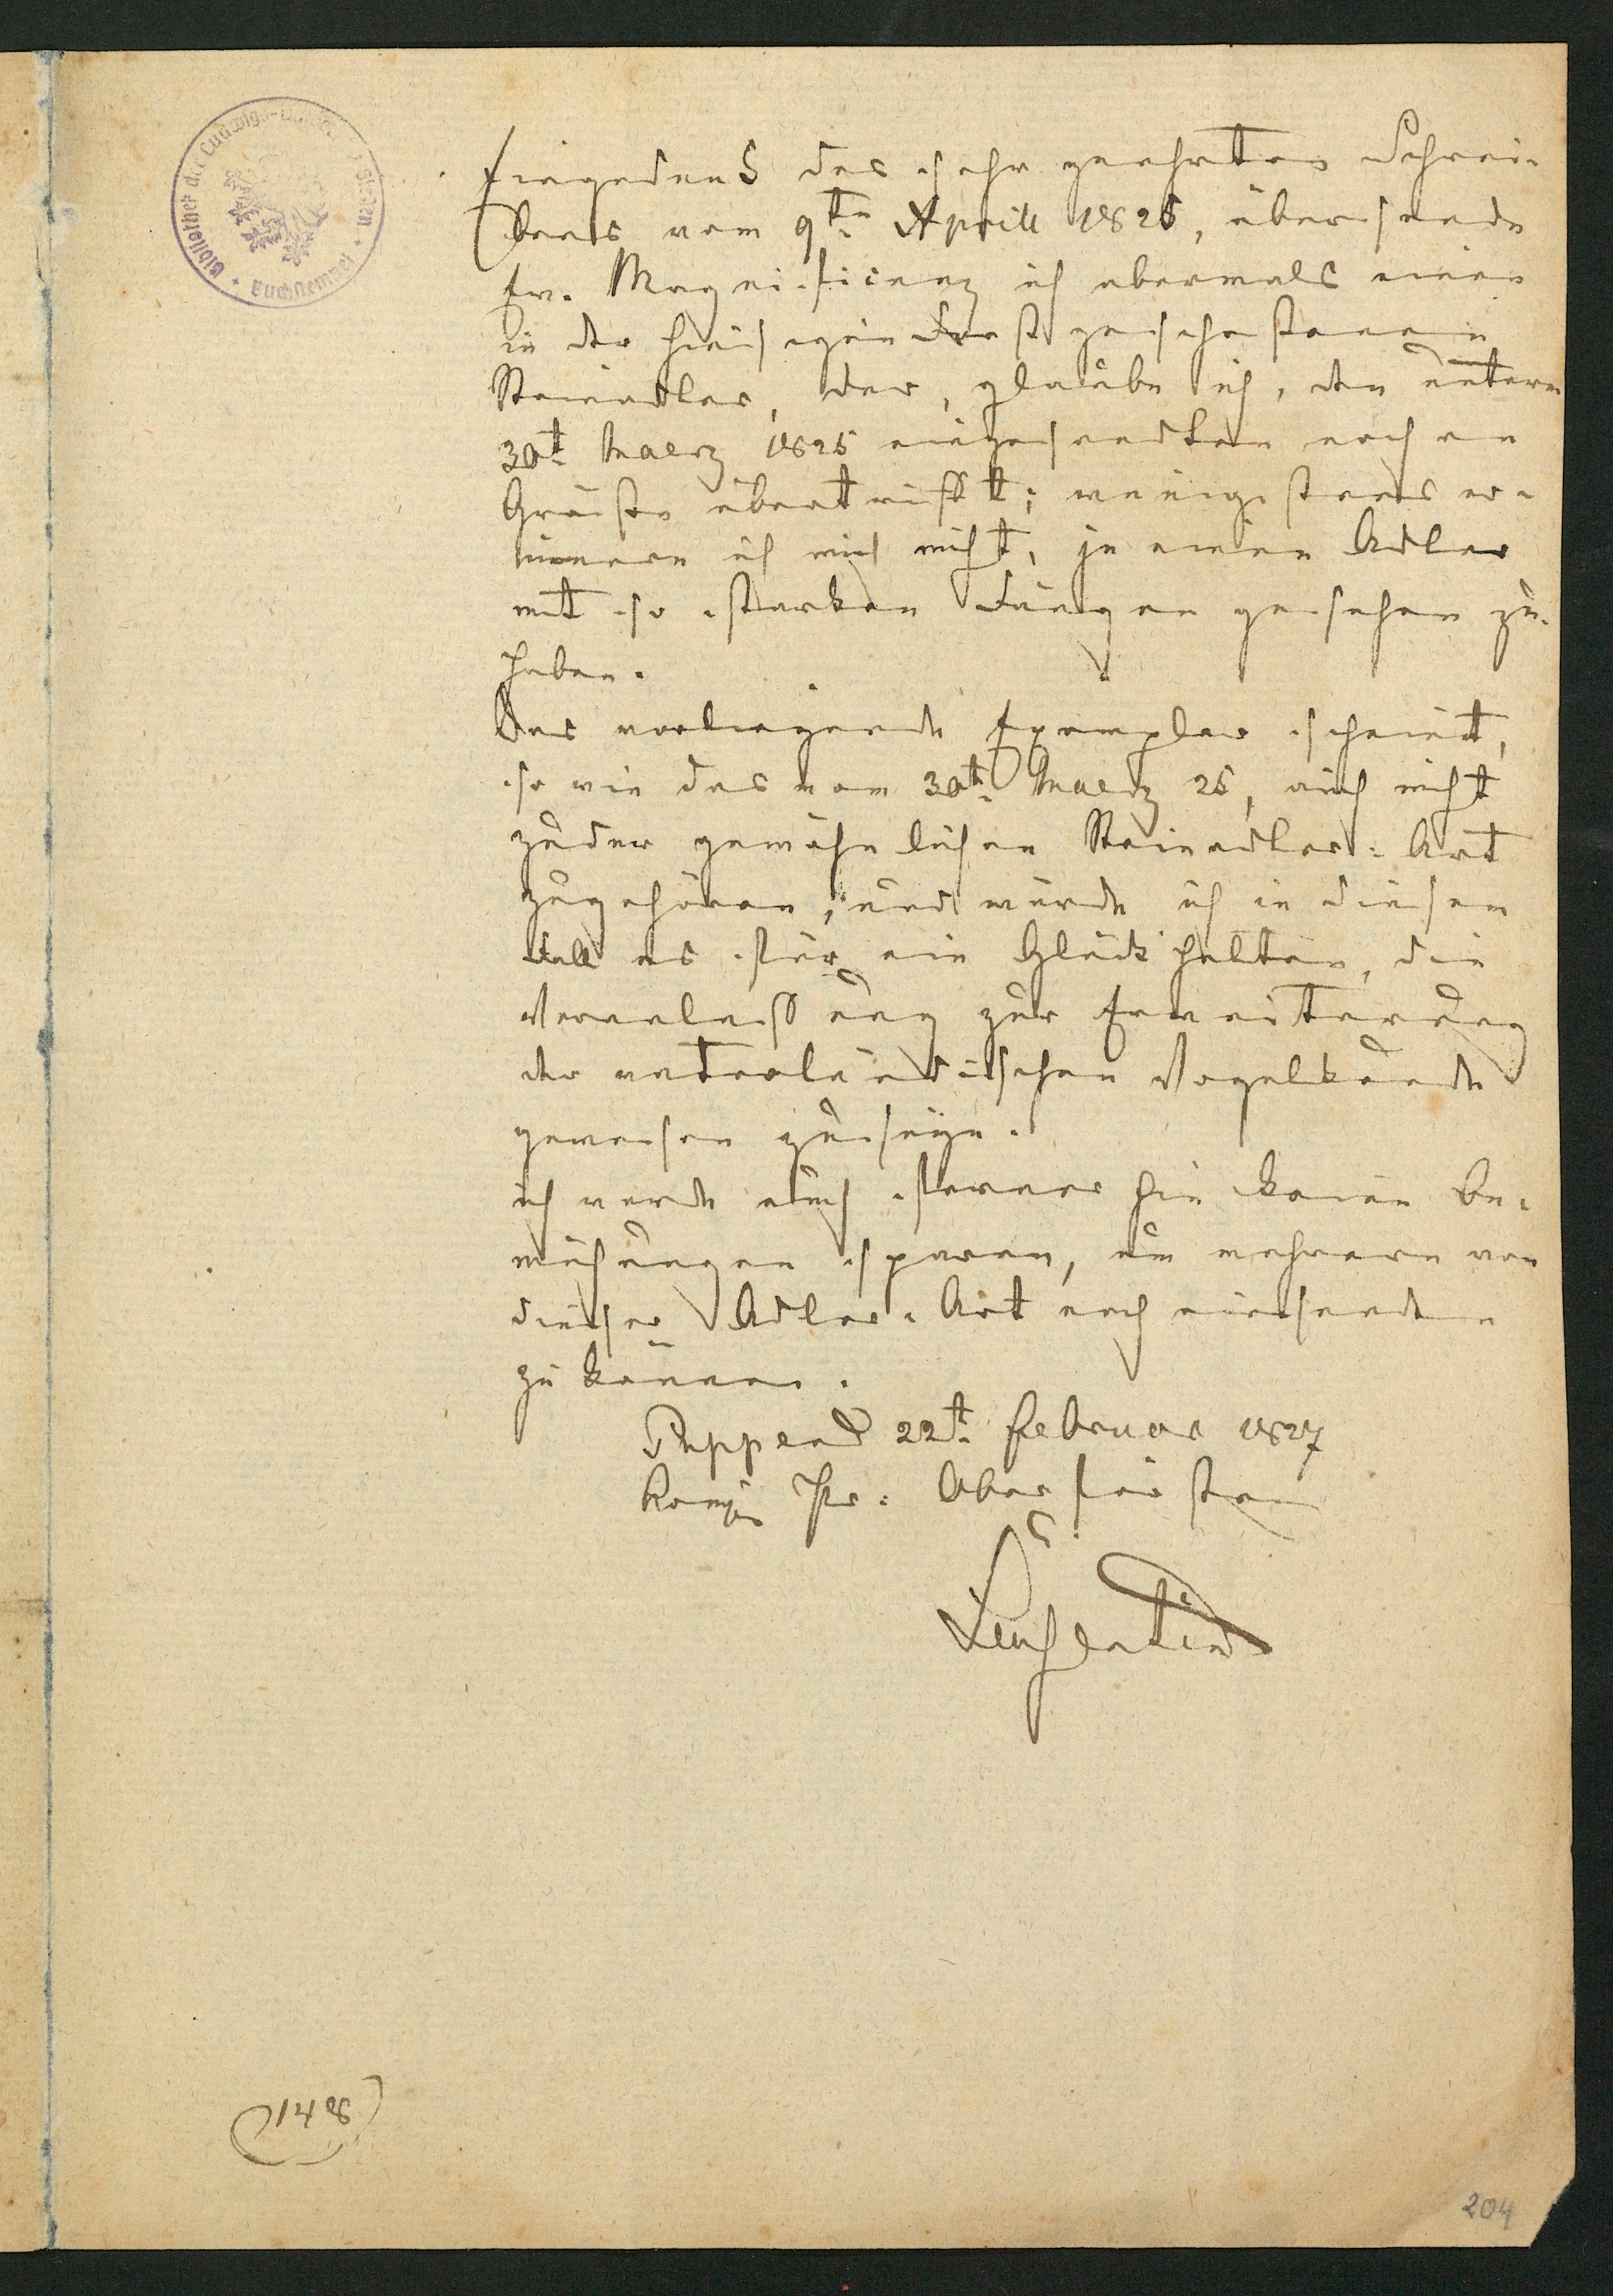 Bibliothek der Ludwigs-
Buchstempel
Eingedenk des sehr geehrten Schrei-
bens vom 9ten Aprill 1825, übersende
Ew. Magnificenz ich abermals einen
in der hiesigen Forst geschossenen
Steinadler, der, glaube ich, den unterm
30t. Maerz 1825 eingesandten noch an
Größe übertrifft; wenigstens er-
innere ich mich nicht, je einen Adler
mit so starken Fängen gesehen zu
haben.
Das vorliegende Exemplar scheint,
so wie das vom 30t. Maerz 25, auch nicht
zu der gewöhnlichen Steinadler-Art
zugehören, und würde ich in diesem
Fall es für ein Glück halten, die
Veranlassung zur Erweiterung
der vaterländischen Vogelkunde
gewesen zu seyn.
ich werde auch ferner hin keine Be-
mühungen sparen, um mehrere von
dieser Adler-Art noch einsenden
zu können.
Puppen d 22t. Februar 1827
Königl. Pr. Oberförster
(1428)
204